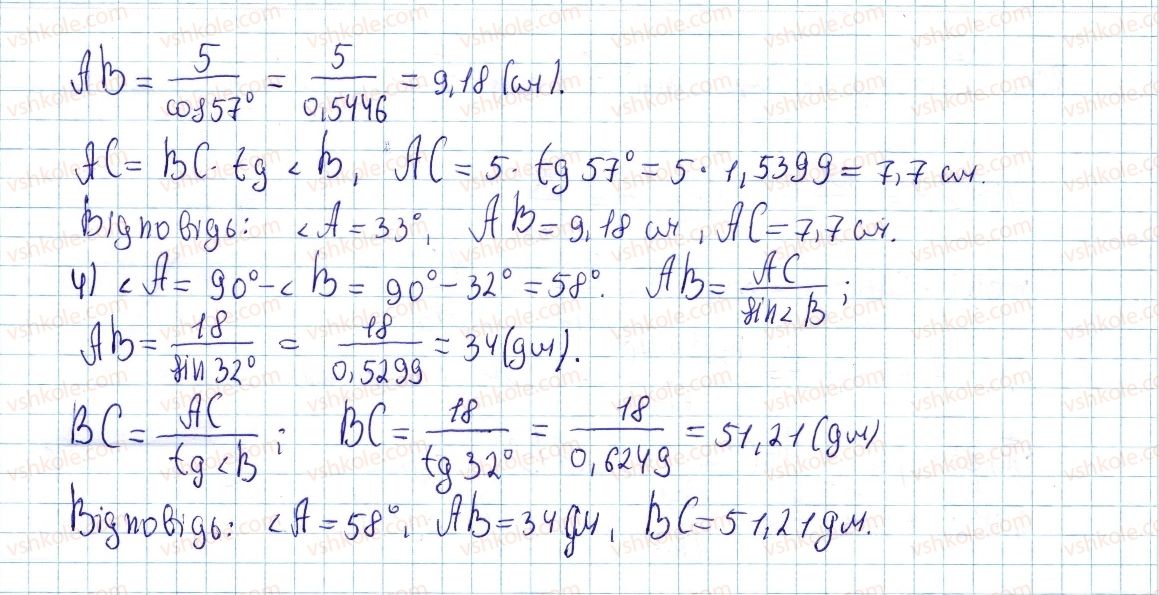 AB = 5/cos57° = 5/0,5446 = 9,18 (см).
AC = BC · tg < B, AC = 5 · tg 57° = 5 · 1,5399 = 7,7 см.
Відповідь: < A = 33°, AB = 9,18 см, AC = 7,7 см.
4) < A = 90° - < B = 90° - 32° = 58°. AB = AC/sin< B;
AB = 18/sin 32° = 18/0,5299 = 34 (дм).
BC = AC/tg < B; BC = 18/tg 32° = 18/0,6249 = 51,21 (дм)
Відповідь: < A = 58°, AB = 34 дм, BC = 51,21 дм.